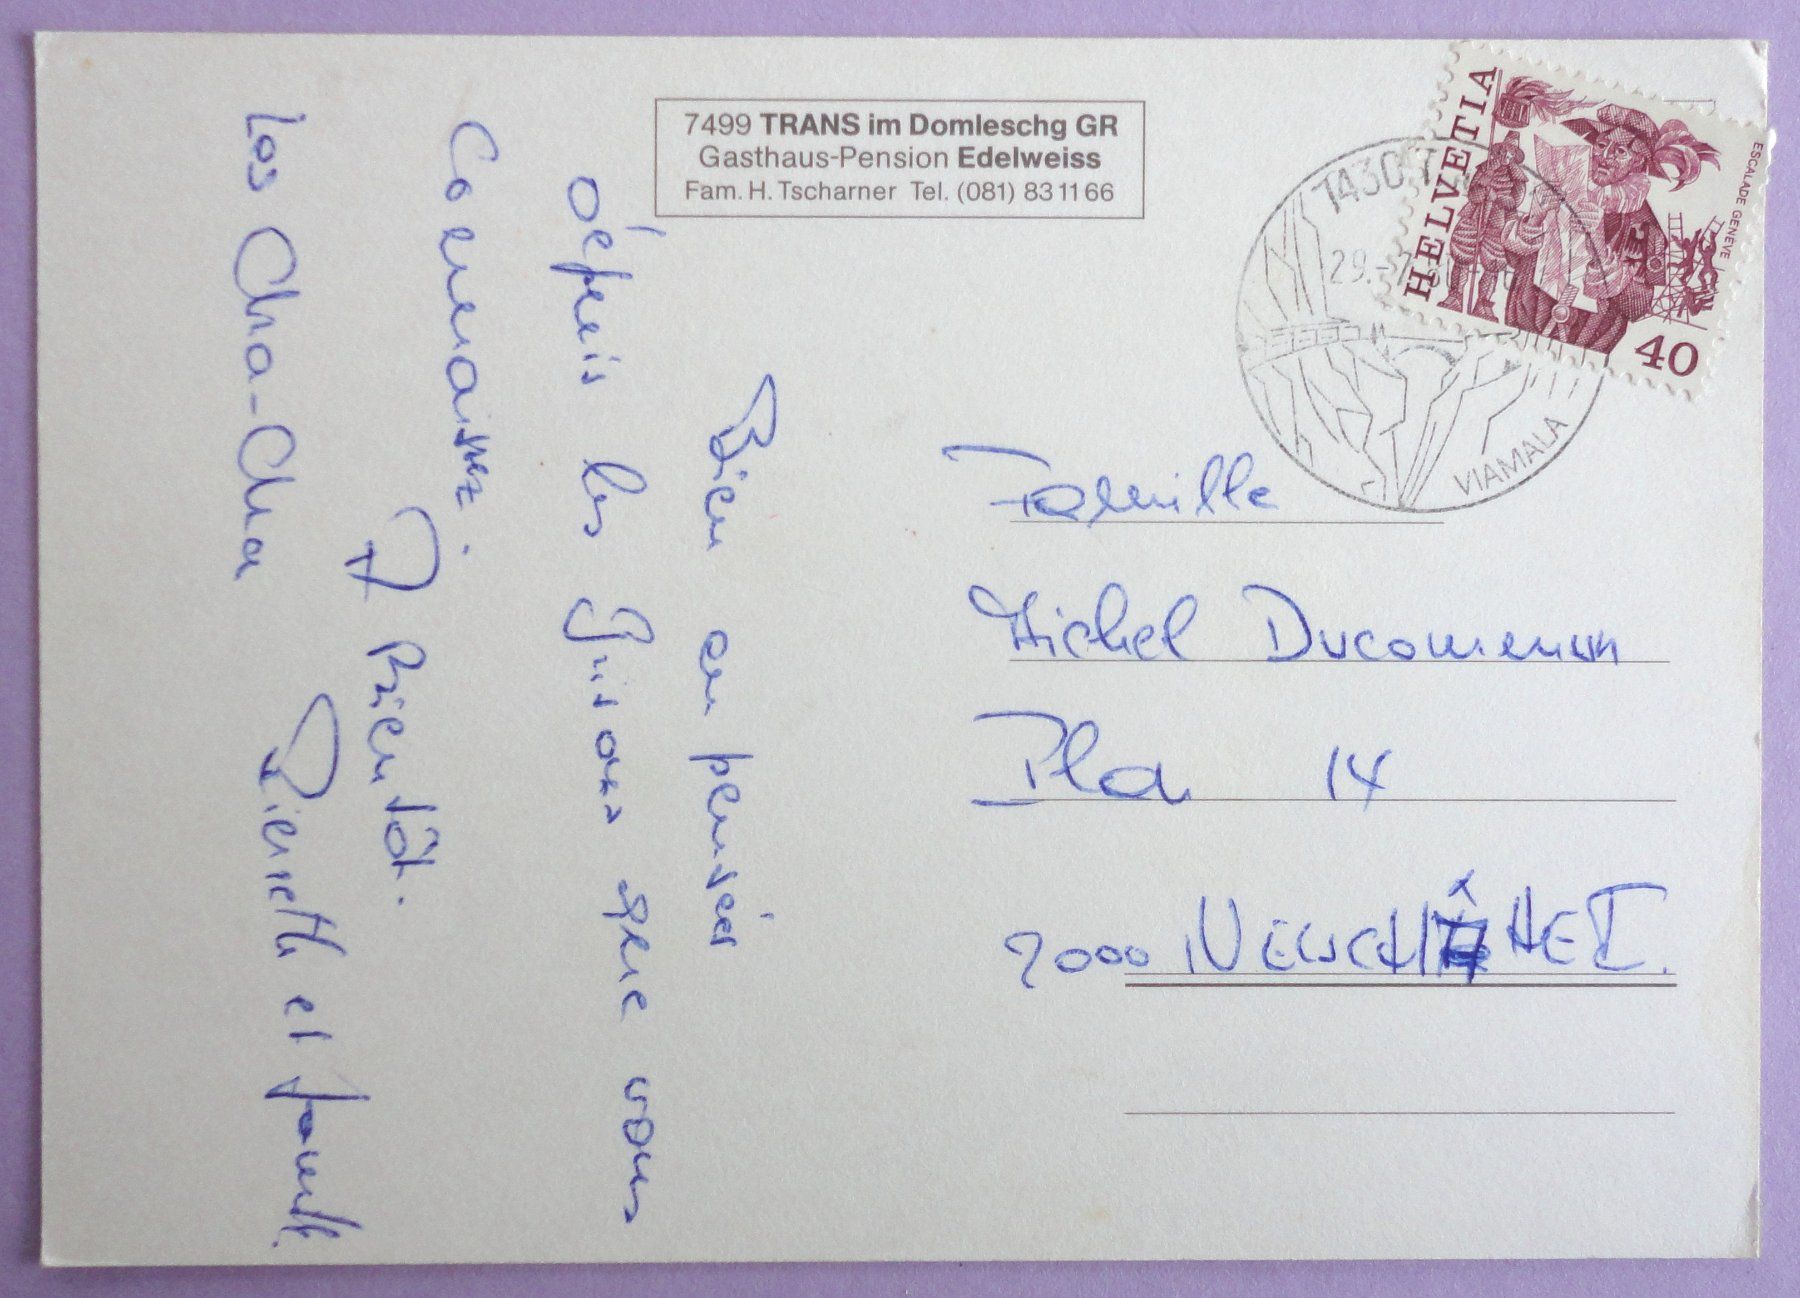 7499 TRANS im Domleschg GR
Gasthaus-Pension Edelweiss
Fam. H. Tscharner Tel. (081) 83 11 66
HELVETIA
ESCALADE GENÈVE
40
7430 T
29.-7
VIAMALA
Famille
Michel Ducommun
Pla 14
2000 NEUCHÂTEL.
Bien en pensées
depuis les Grisons que vous
connaissez.
A Bientôt.
Pierrette et famille
Los Cha-Cha